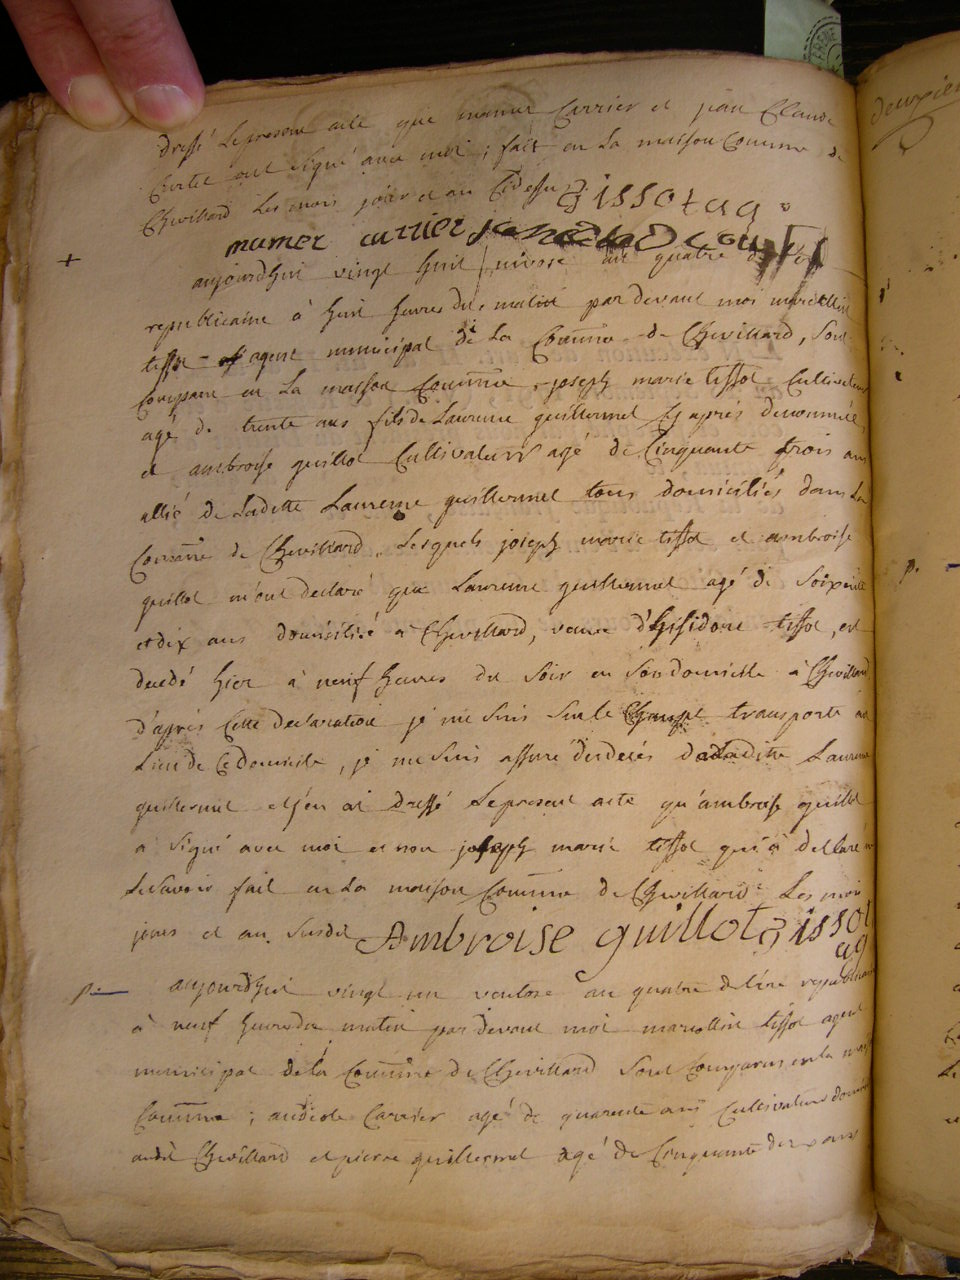 dressé Lepresent acte que mamer Carrier et jean Claude
Curtet ont signé avec moi ; fait en La maison Commune de
Chevillard Les mois jour et an Cidessus tissot ag
mamer carrier
aujourdhui vingt huit nivose an quatre de l'ère
republicaine à huit heures du matin pardevant moi marcellin
tissot agent municipal de La Commune de Chevillard, Sont
Comparu en La maison Commune joseph marie tissot Cultivateur
agé de trente ans fils de Laurenne guillermet Cy après denommée,
et ambroise guillot Cultivateur agé de Cinquante trois ans
allié de Ladette Laurenne guillermet tous domiciliés dans La
Comme de Chevillard, Lesquels joseph marie tissot et ambroise
guillot m'ont declaré que Laurenne guillermet agé de Soixente
et dix ans domicilié à Chevillard, veuve d'hisidore tissot, est
decedé hier à neuf heures du Soir en Son domicille à Chevillard
d'après Cette declaration je me Suis Sur le Champt transporté au
Lieu de Ce domicile, je me Suis assuré du deces de Ladite Laurenne
guillermet et j'en ai dressé Lepresent acte qu'ambroise guillot
a Signé avec moi et non joseph marie tissot qui a declaré ne
Lesavoir fait en La maison Commune de Chevillard Les mois
jours et an Susdit Ambroise guillot tissot
ag
p. aujourdhui vingt un ventose an quatre de l'ère republicaine
à neuf heures du matin par devant moi marcellin tissot agent
municipal de la Commune de Chevillard Sont Comparus en la maison
Commune ; Carrier agé de quarente ans Cultivateur
audit Chevillard et pierre guillermet agé de Cinquante deux ans